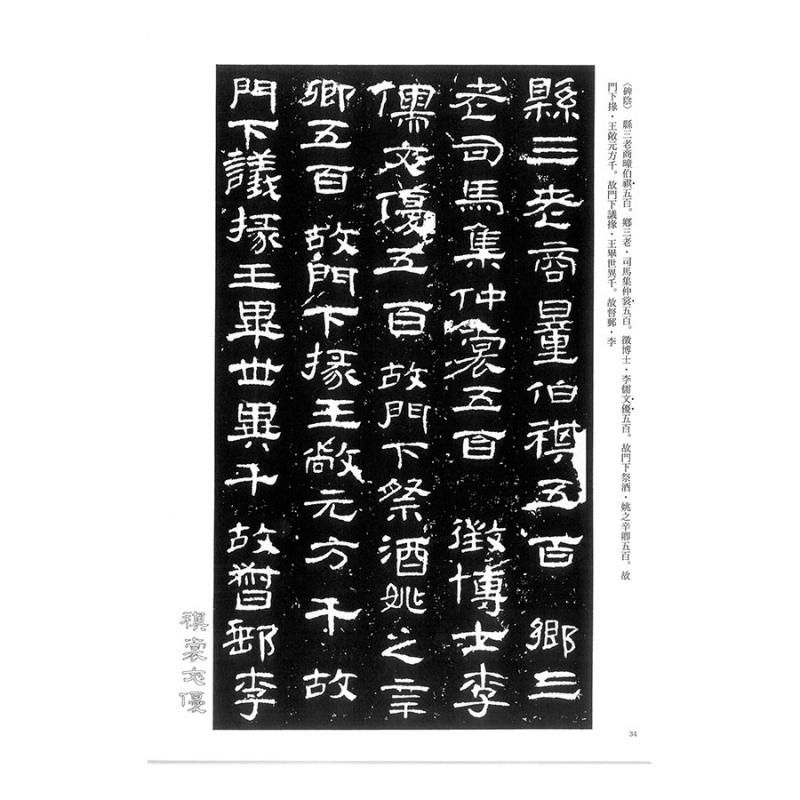 〈碑陰〉 縣三老商暲伯祺五百。鄉三老・司馬集仲裳五百。徵博士・李儒文優五百。故門下祭酒・姚之辛卿五百。故
門下掾・王敞元方千。故門下議掾・王畢世異千。故督郵・李
縣三老商量伯祺五百 鄉三
老司馬集仲裳五百 徵博士李
儒文優五百 故門下祭酒姚之辛
卿五百 故門下掾王敞元方千 故
門下議掾王畢世異千 故督郵李
祺裳文優
34